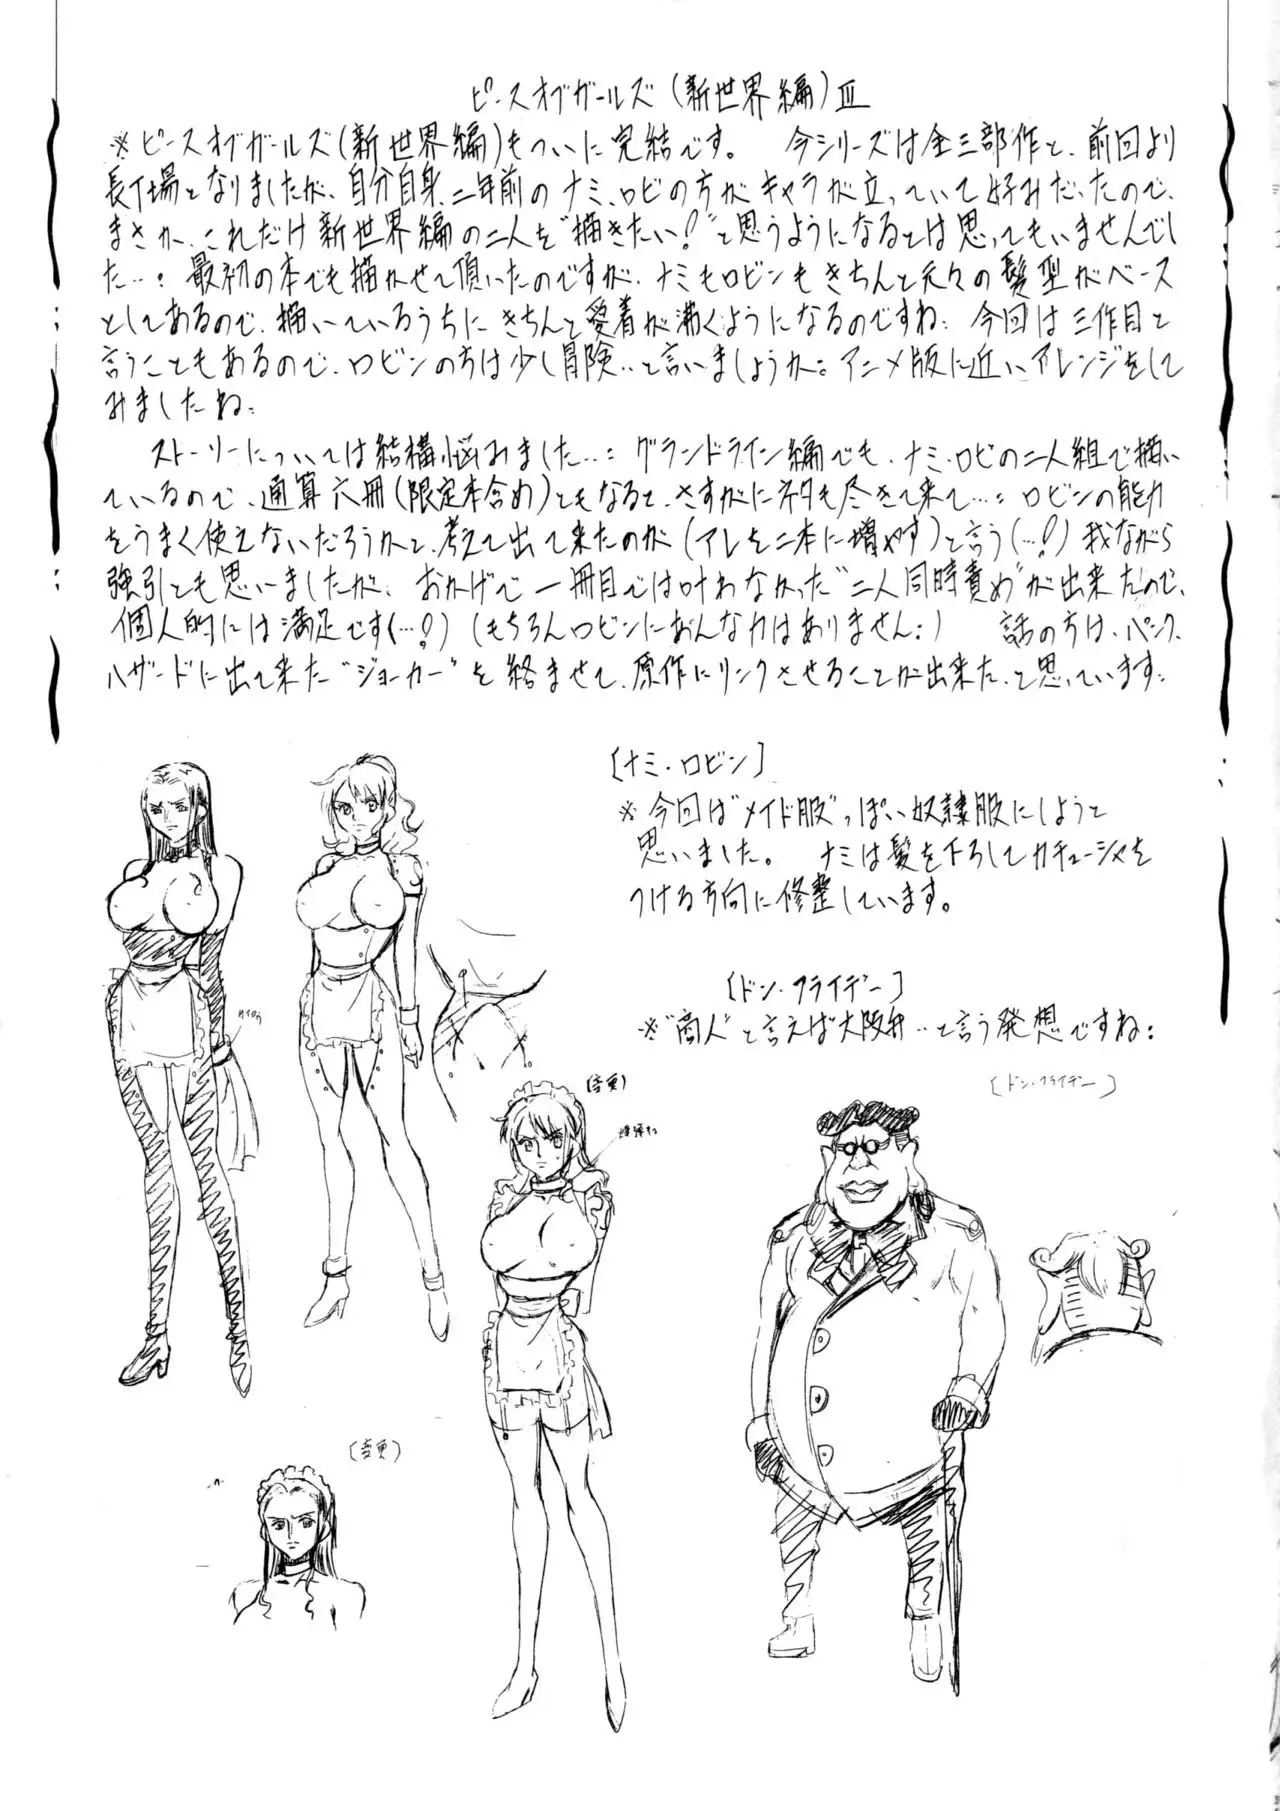 ピースオブガールズ(新世界編)Ⅲ
※ピースオブガールズ(新世界編)もついに完結です。 今シリーズは全三部作と、前回より
長丁場となりましたが、自分自身、二年前のナミ、ロビの方がキャラが立っていて好みだったので、
まさか、これだけ新世界編の二人を“描きたい!”と思うようになるとは思ってもいませんでし
た…: 最初の本でも描かせて頂いたのですが、ナミもロビンもきちんと元々の髪型がベース
としてあるので、描いているうちにきちんと愛着が沸くようになるのですね: 今回は三作目と
言うこともあるので、ロビンの方は少し冒険‥と言いましょうか。アニメ版に近いアレンジをして
みましたね:
ストーリーについては結構悩みました…: グランドライン編でも、ナミ・ロビの二人組で描い
ているので、通算六冊(限定本含め)ともなると、さすがにネタも尽きて来て…: ロビンの能力
をうまく使えないだろうかと、考えて出て来たのが(アレを二本に増やす)と言う(…!?)我ながら
強引とも思いましたが、おかげで一冊目では叶わなかった“二人同時責め”が出来たので、
個人的には満足です(…!?)(もちろんロビンにあんな力はありません:) 話の方は、パンク
ハザードに出て来た“ジョーカー”を絡ませて、原作にリンクさせることが出来た、と思っています:
[ナミ・ロビン]
※今回は“メイド服”っぽい奴隷服にしようと
思いました。 ナミは髪を下ろしてカチューシャを
つける方向に修整しています。
[ドン・フライデー]
※“商人”と言えば大阪弁‥と言う発想ですね:
[ドン・フライデー]
(変更)
(変更)